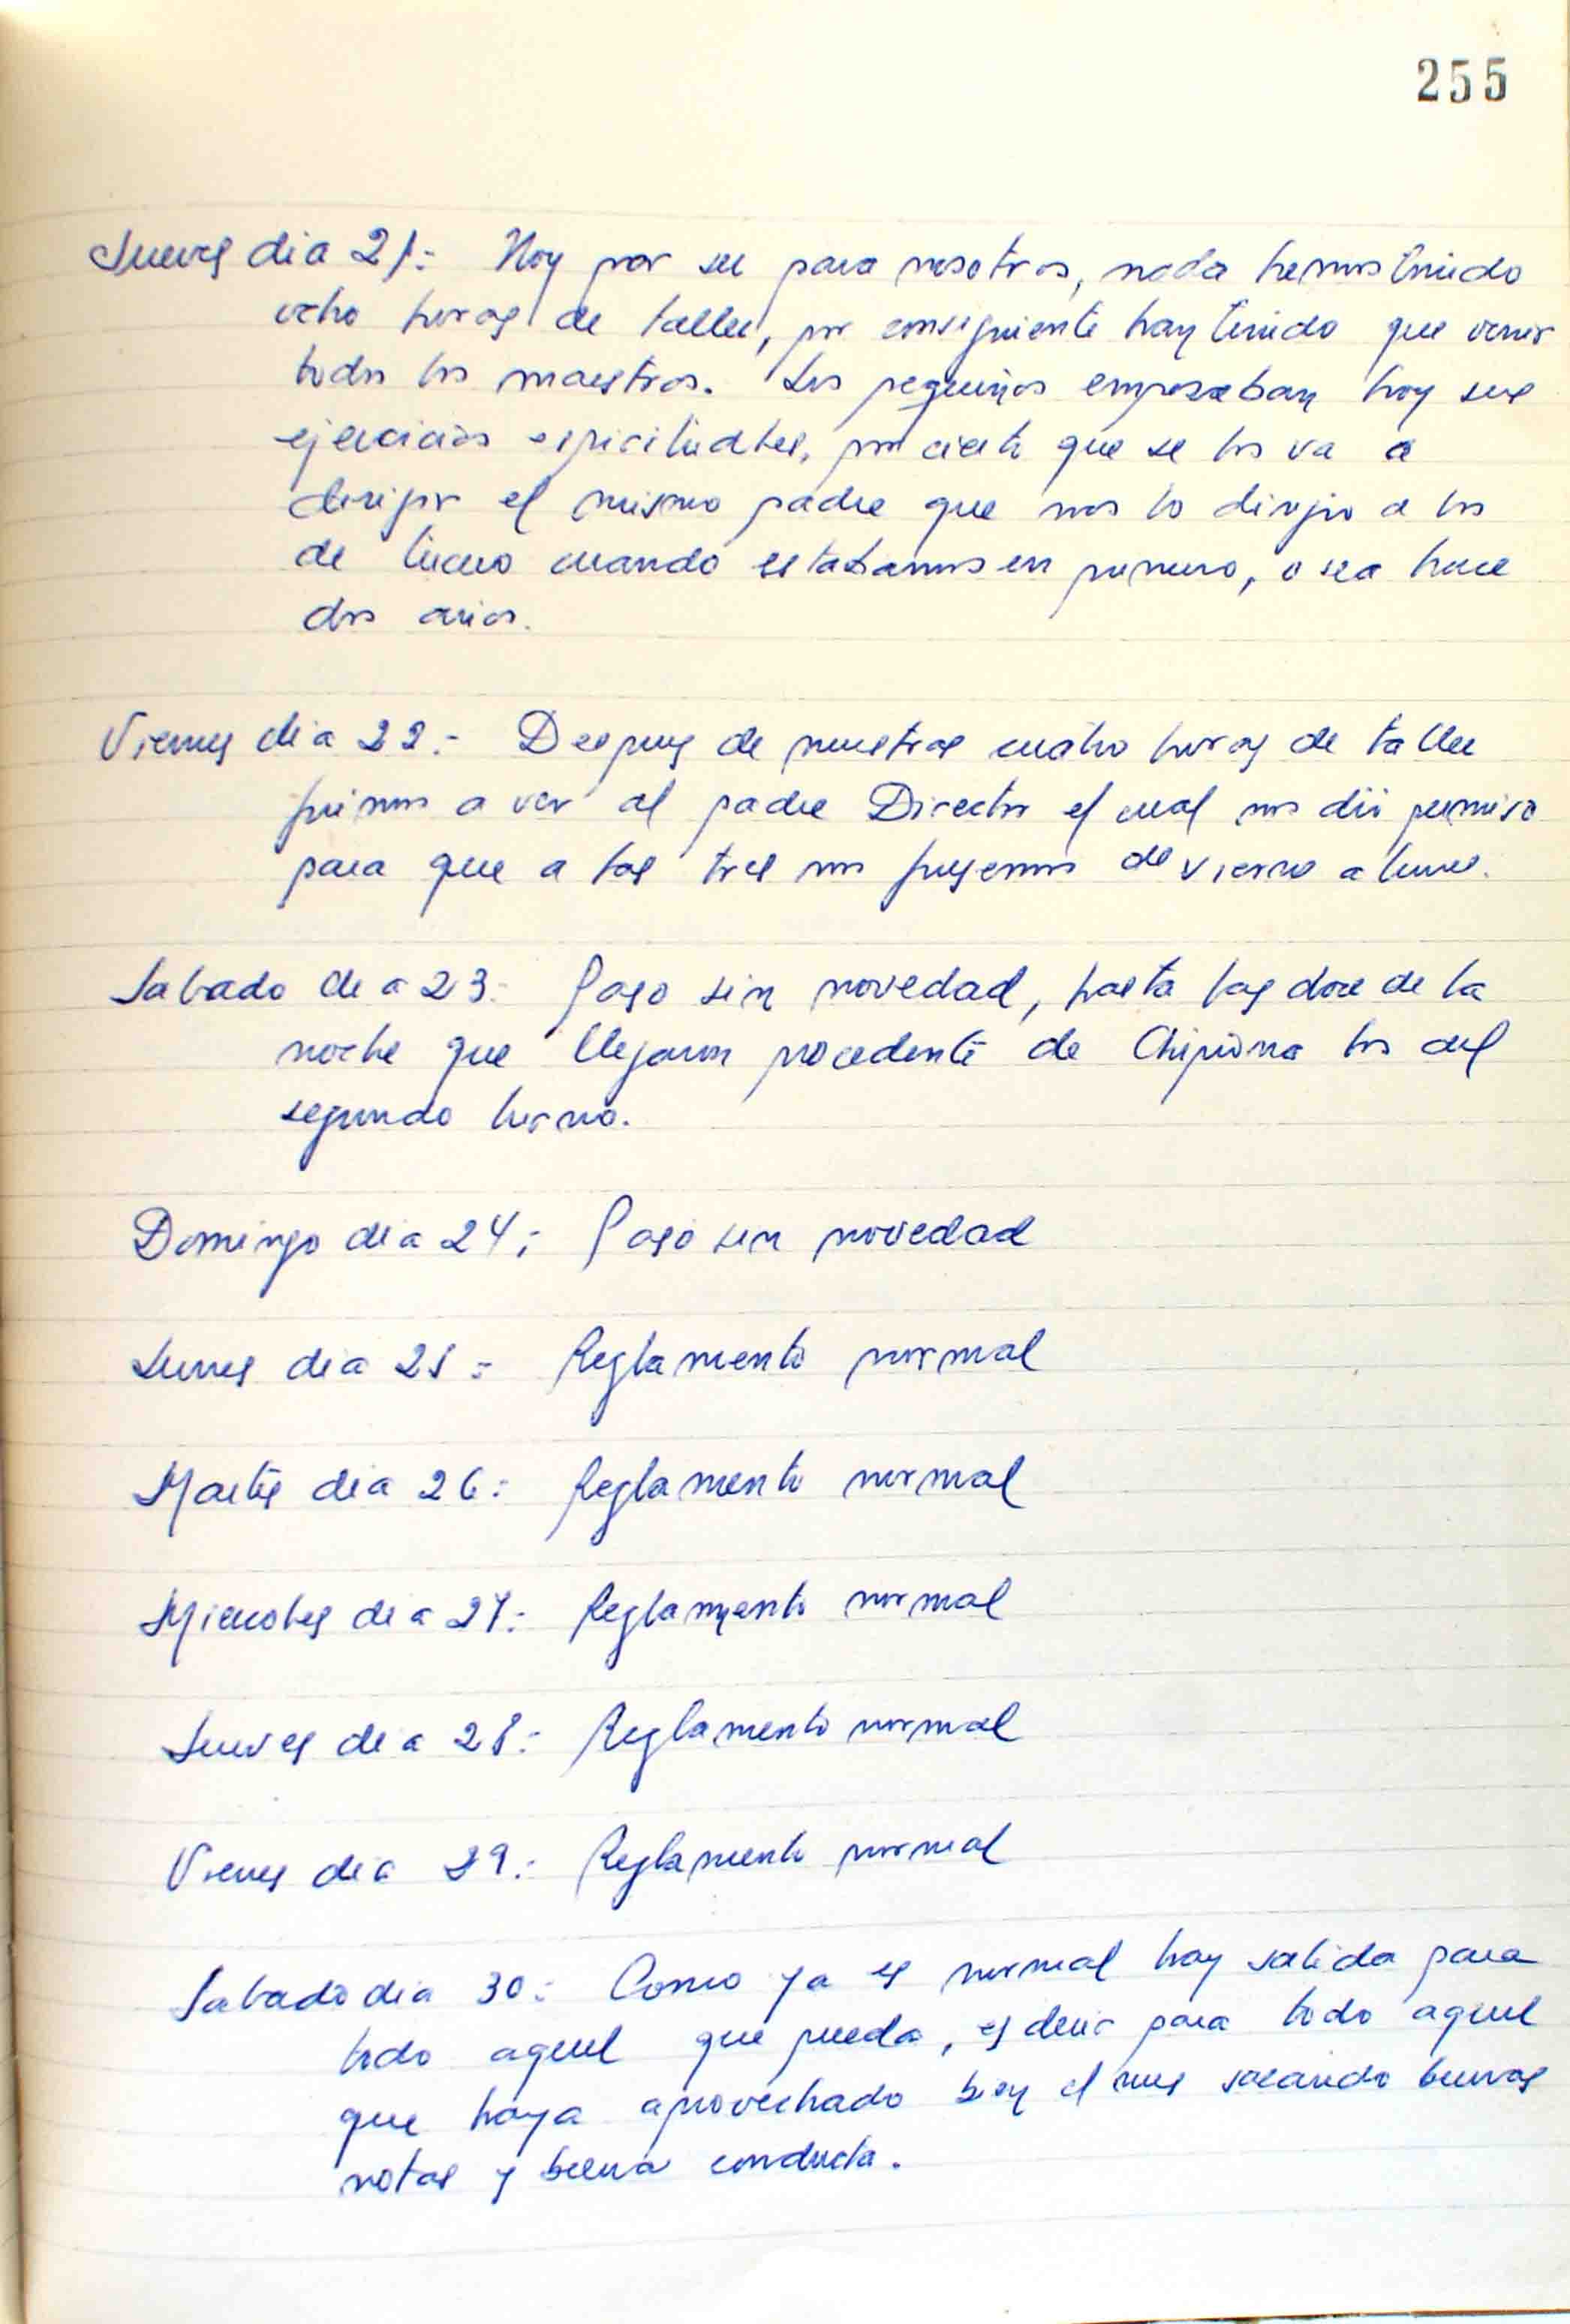 255
Jueves dia 21:- Hoy por ser para nosotros, nada hemos tenido
ocho horas de taller, por consiguiente hay tenido que venir
todos los maestros. Los pequeños empezaban hoy sus
ejercicios espirituales, por cierto que se los va a
dirigir el mismo padre que nos lo dirijio a los
de tercero cuando estabamos en primero, o sea hace
dos años.
Viernes dia 22.- Despues de nuestras cuatro horas de taller
fuimos a ver al padre Director el cual nos dió permiso
para que a las tres nos fuesemos de viernes a lunes.
Sabado dia 23:- Paso sin novedad, hasta las doce de la
noche que llegaron procedente de Chipiona los del
segundo turno.
Domingo dia 24:- Paso sin novedad
Lunes dia 25:- Reglamento normal
Martes dia 26:- Reglamento normal
Miercoles dia 27:- Reglamento normal
Jueves dia 28:- Reglamento normal
Viernes dia 29:- Reglamento normal
Sabado dia 30:- Como ya es normal hay salida para
todo aquel que pueda, es decir para todo aquel
que haya aprovechado bien el mes sacando buenas
notas y buena conducta.